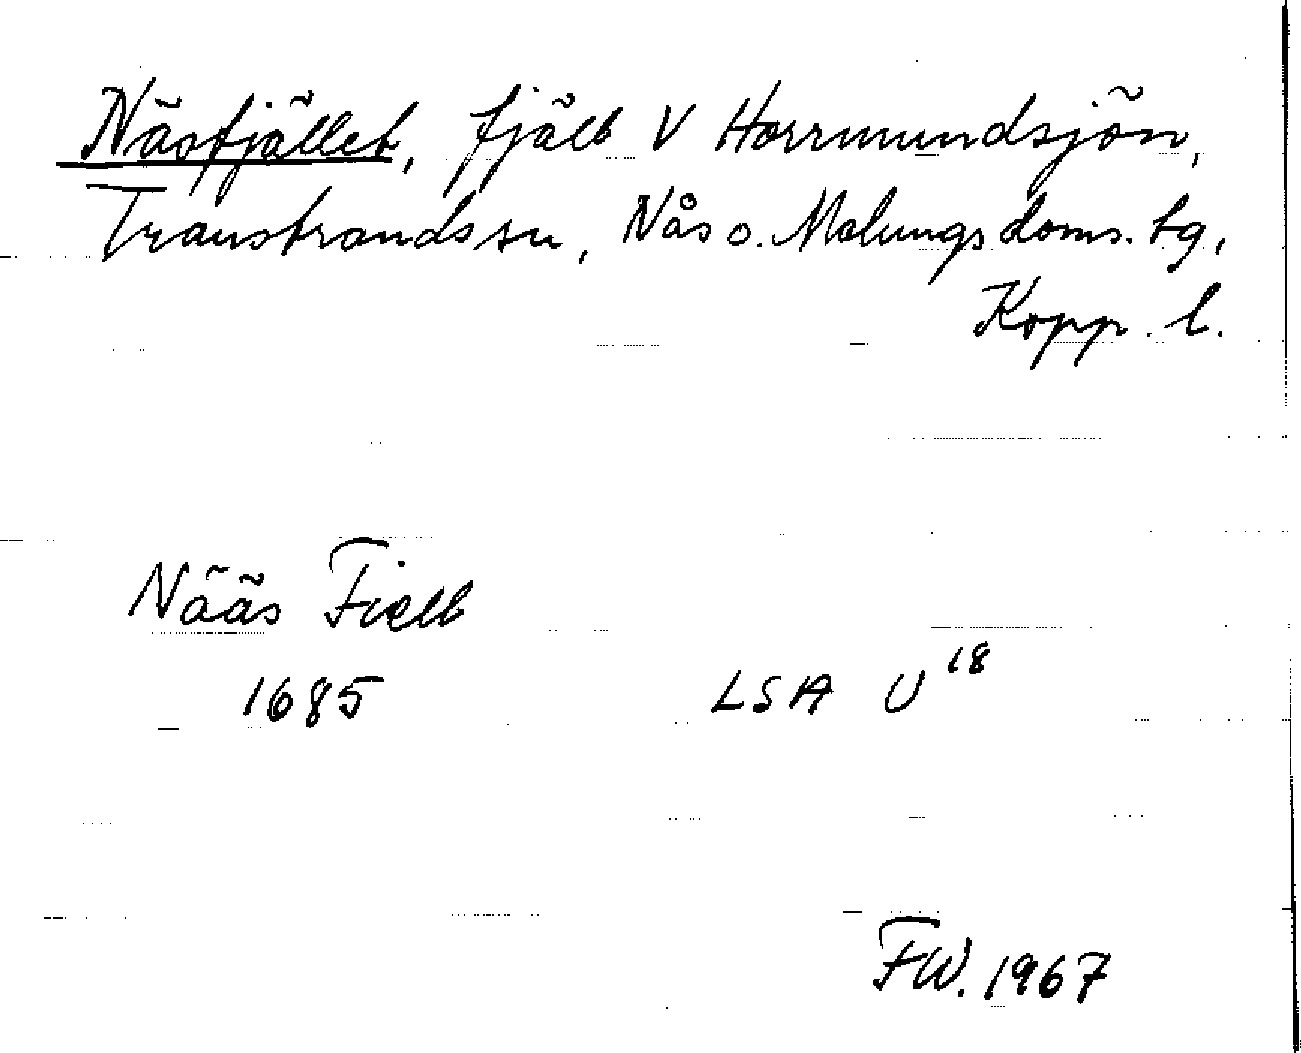 Näsfjället, fjäll V Horrmundsjön,
Transtrands sn, Nås o. Malungs doms. tg,
Kopp. l.
Nääs Fiell
1685 LSA U¹⁸
FW. 1967